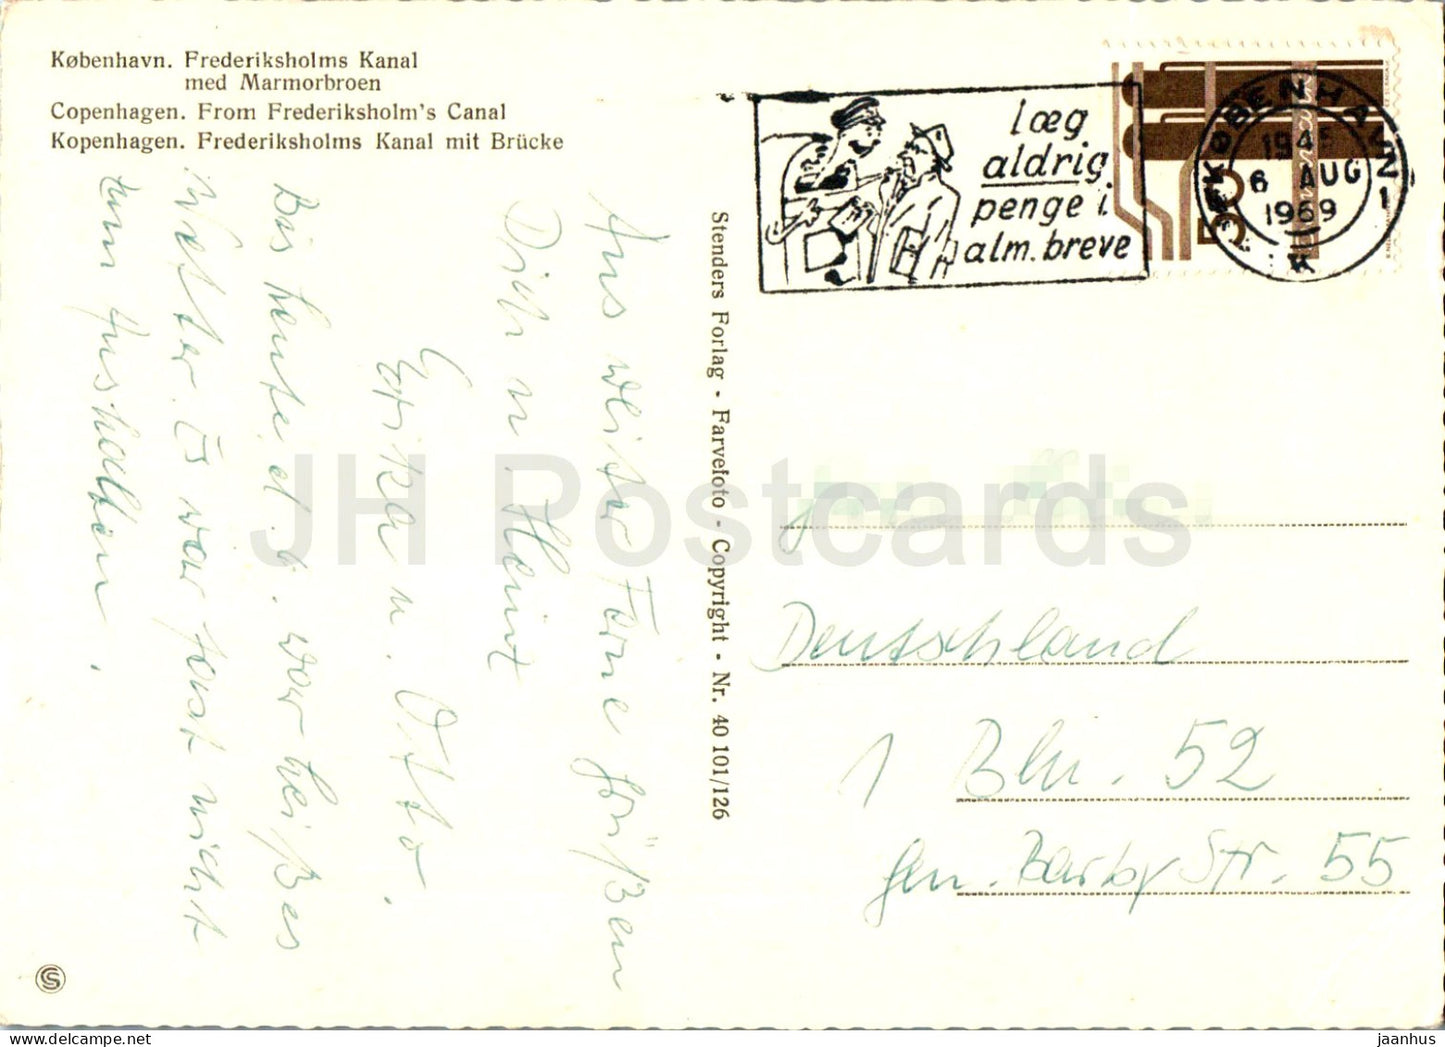 København. Frederiksholms Kanal
med Marmorbroen
Copenhagen. From Frederiksholm's Canal
Kopenhagen. Frederiksholms Kanal mit Brücke
læg
aldrig
penge i
alm. breve
KØBENHAVN
1945
6 AUG
1969
K
50
DANMARK
Aus weiter Ferne grüßen
Dich u Heinz
Erika u. Otto.
Bis heute d. war heißes
Wetter. Es war fast nicht
zum Aushalten.
Stenders Forlag • Farvefoto - Copyright • Nr. 40 101/126
Deutschland
1 Bln. 52
Gen. Barby Str. 55
JH Postcards
S
delcampe.net
jaanhus